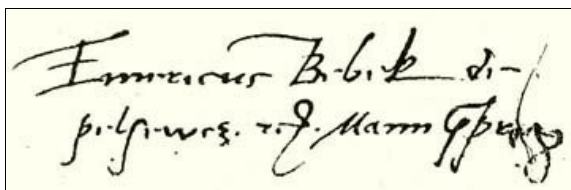 Emericus Bebek de
pelsewcz. Mann ppria